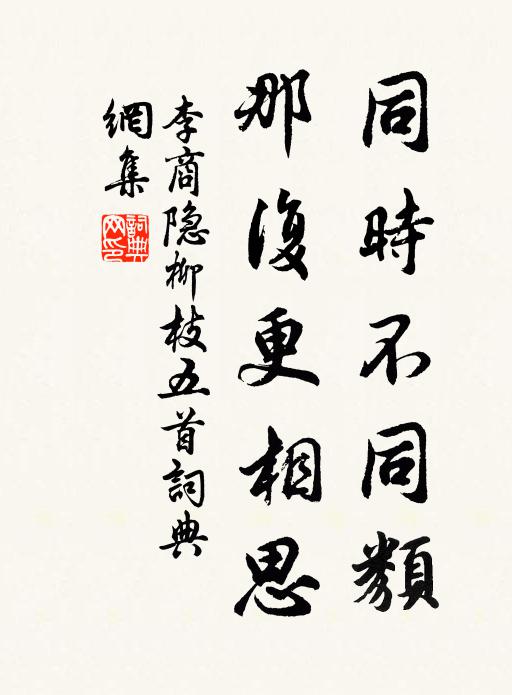 同時不同類
那復更相思
李商隐柳枝五首詞典
網集
詞典网印